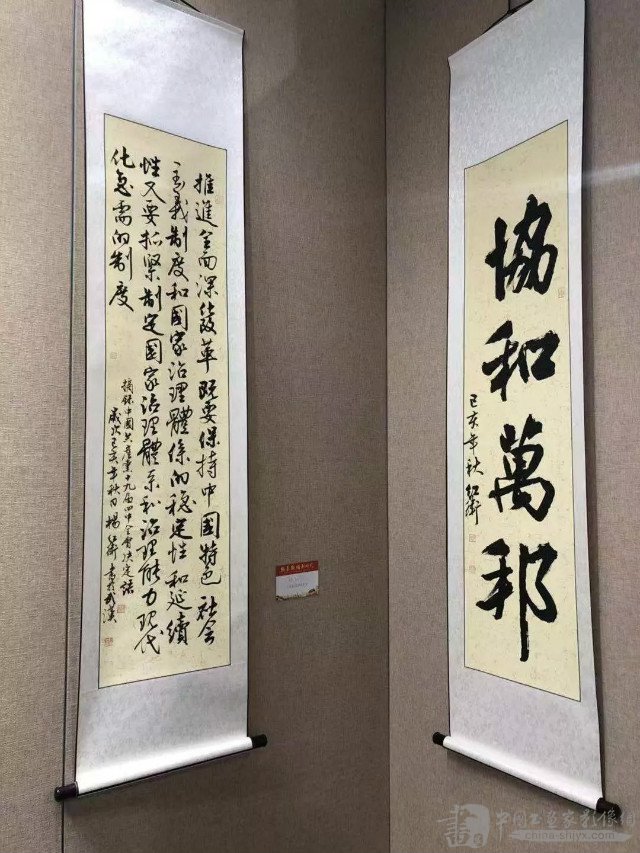 推進全面深化改革既要保持中國特色社會
主義制度和國家治理體係的穩定性和延續
性又要抓緊制定國家治理體系和治理能力現代
化急需的制度
摘錄中國共產黨十九屆四中全會決定
歲次己亥年秋月楊書於武漢
協和萬邦
己亥年秋